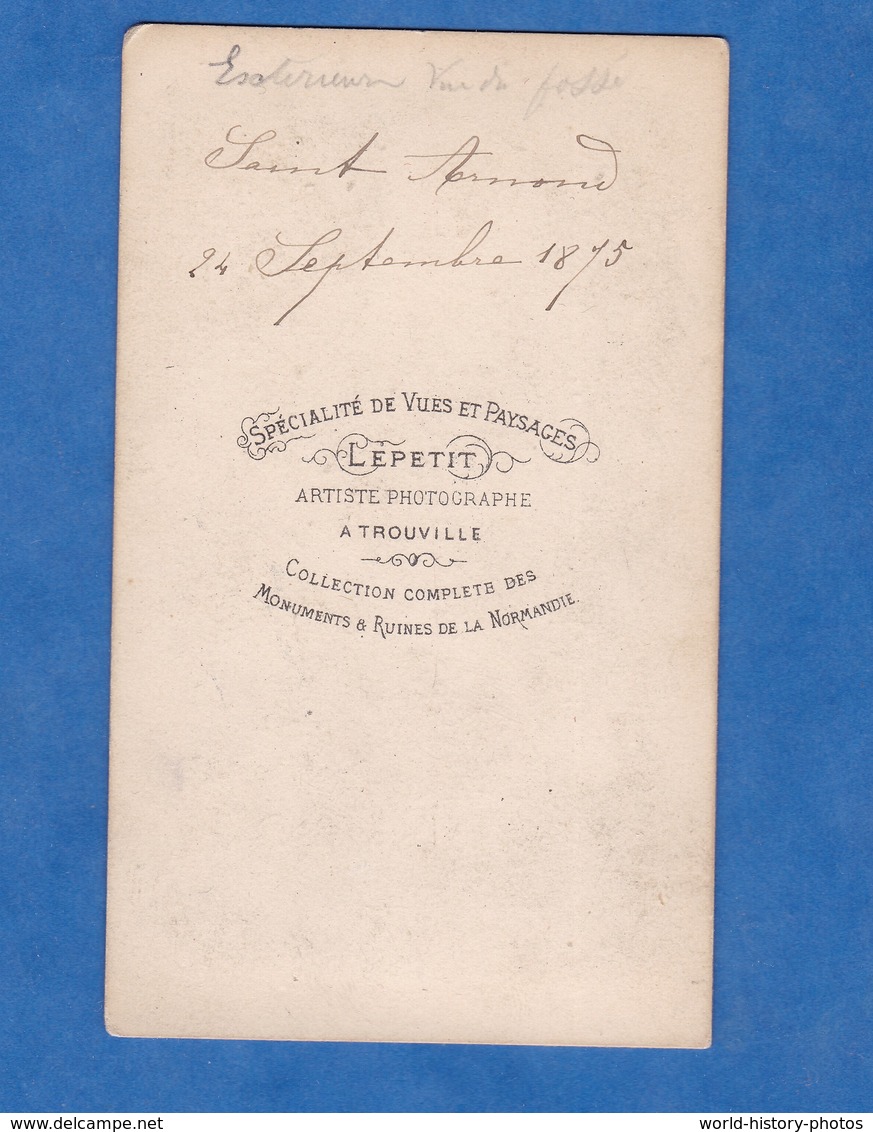 Exterieur Vue du fossé
Saint Arnond
24 Septembre 1875
SPÉCIALITÉ DE VUES ET PAYSAGES
LEPETIT
ARTISTE PHOTOGRAPHE
A TROUVILLE
COLLECTION COMPLETE DES
MONUMENTS & RUINES DE LA NORMANDIE.
delcampe.net
world-history-photos